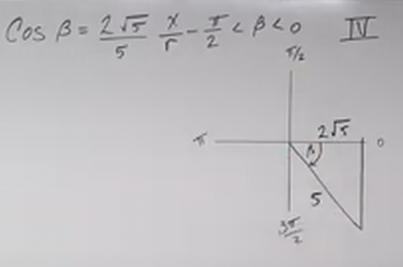 Cos β = 2√5/5 x/r - π/2 < β < 0 IV
π/2
π
2√5
0
β
5
3π/2